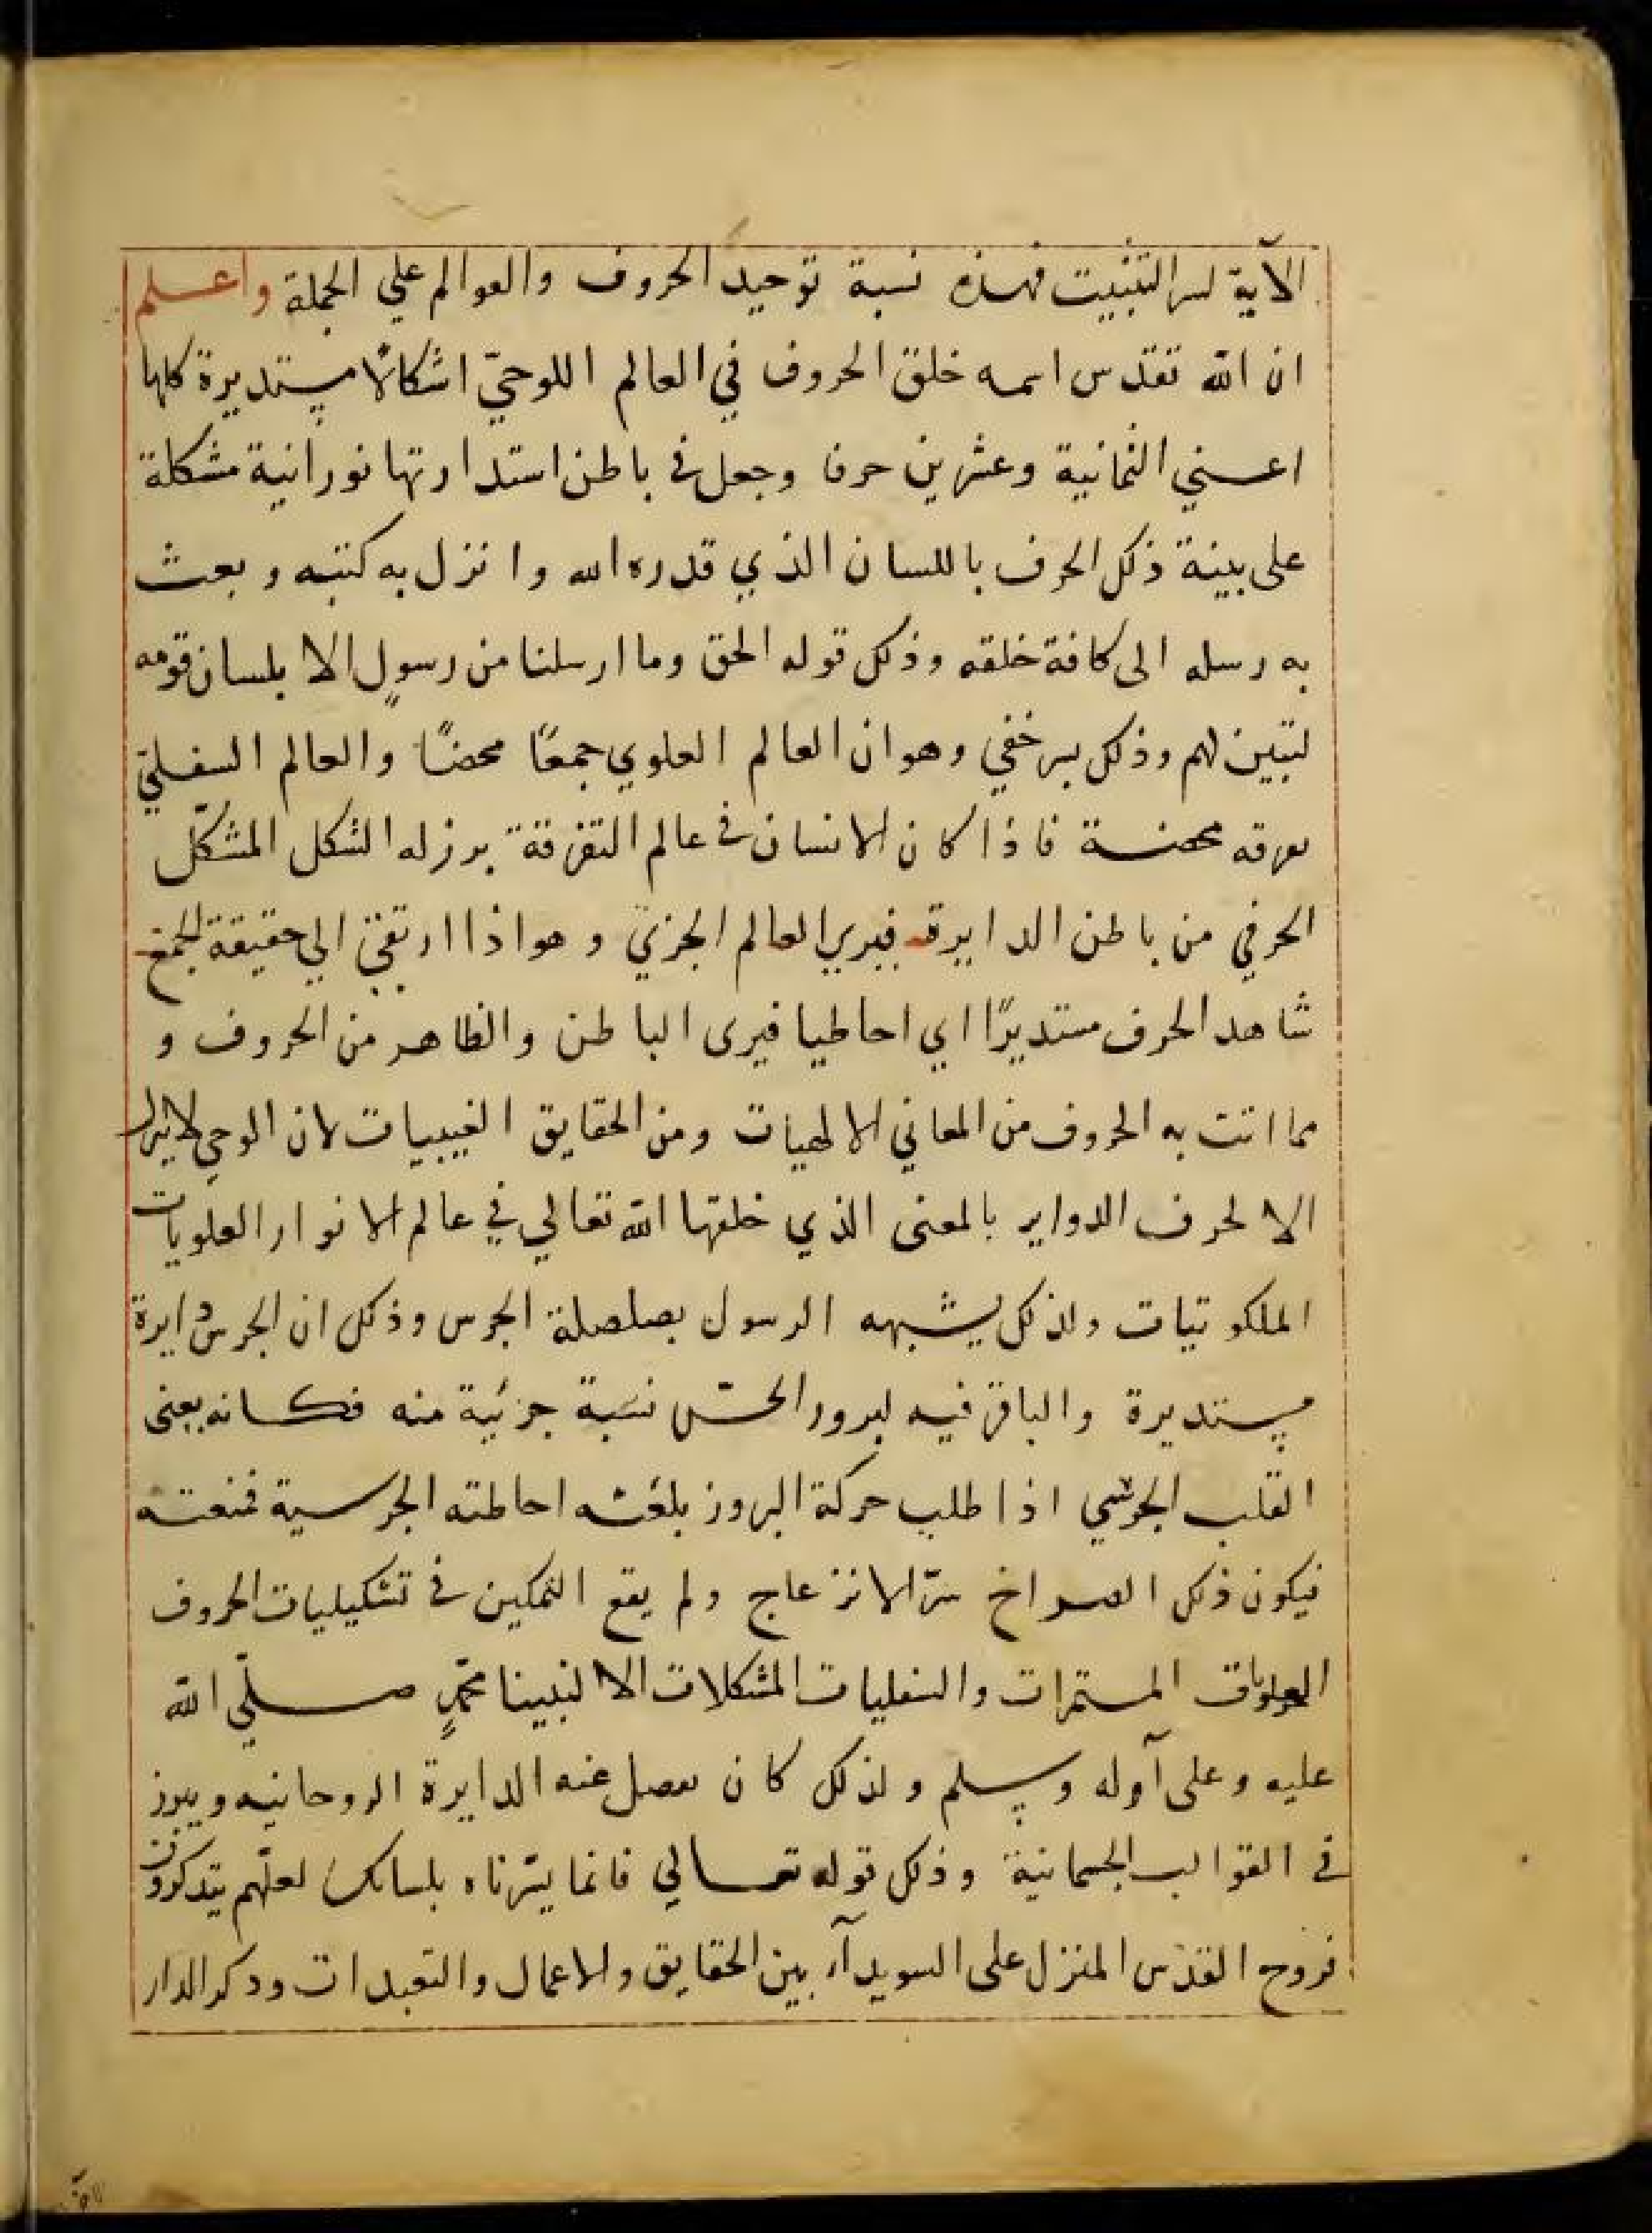 الآية لسر التثبيت فهذه نسبة توحيد الحروف والعوالم علي الجملة واعلم
ان الله تقدس اسمه خلق الحروف في العالم اللوحيّ اشكالًا مستديرة كلها
اعني الثمانية وعشرين حرفا وجعل في باطن استدارتها نورانية مشكلة
على بينة ذلك الحرف باللسان الذي قدره الله وانزل به كتبه وبعث
به رسله الى كافة خلقه وذلك قوله الحق وما ارسلنا من رسولٍ الا بلسان قومه
لتبين لهم وذلك بسر خفي وهو ان العالم العلوي جمعًا محضًا والعالم السفليّ
تعرقه محضة فاذا كان الانسان في عالم التفرقة برز له الشكل المشكّل
الحرفي من باطن الدايرة فيري العالم الجزيّ وهو اذا ارتقي الي حقيقة الجمع
شاهد الحرف مستديرًا اي احاطيا فيرى الباطن والظاهر من الحروف و
مما اتت به الحروف من المعاني الالهيات ومن الحقايق الغيبيات لان الوحي لا ينزل
الا لحرف الدواير بالمعنى الذي خلقها الله تعالي في عالم الانوار العلويات
الملكوتيات ولذلك يشبهه الرسول بصلصلة الجرس وذلك ان الجرس دايرة
مستديرة والباقر فيه لبرود الحسّ نسبة جزئية منه فكانه يعنى
القلب الجرسي اذا طلب حركة البروز بلغته احاطته الجرسية فمنعته
فيكون ذلك الصراخ سرّ الانزعاج ولم يقع التمكين في تشكيليات الحروف
العلويات المستمرات والسفليات المشكلات الا لنبينا محمّدٍ صلّي الله
عليه وعلى آوله وسلم ولذلك كان تفصل عنه الدايرة الروحانيه ويبرز
في القوالب الجسمانية وذلك قوله تعالي فانما يسّرناه بلسانك لعلّهم يتدكرون
فروح القدس المنزل على السويدآء بين الحقايق والاعمال والتعبدات ودكر الدار